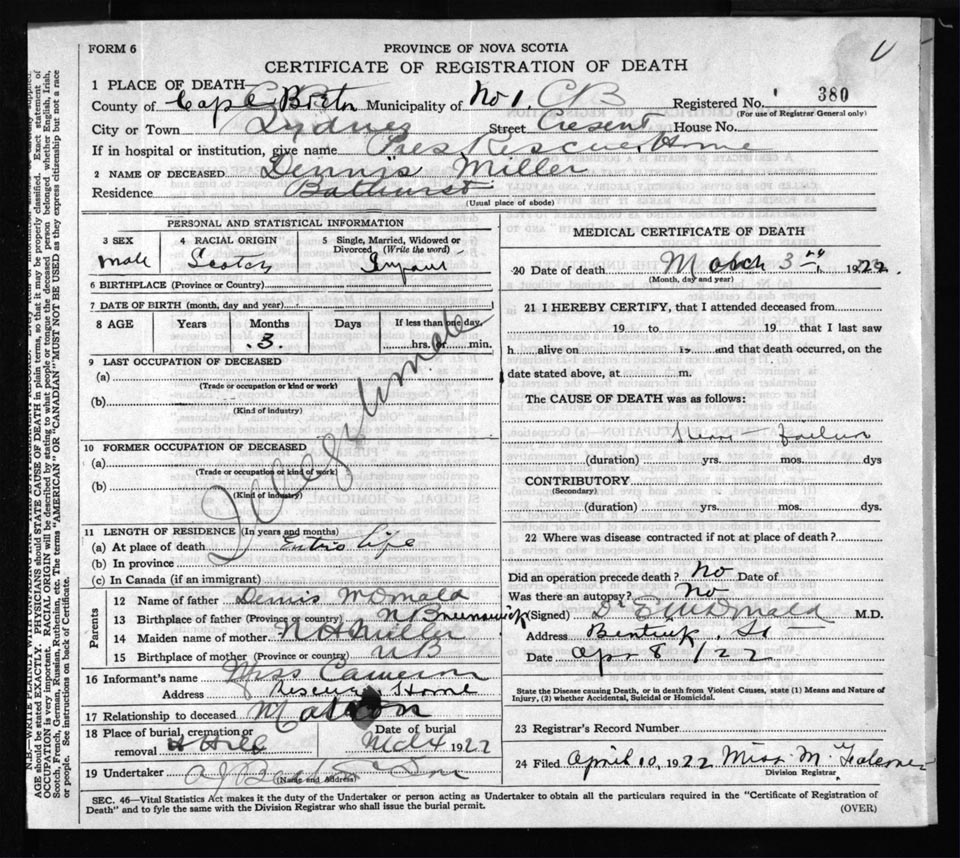 FORM 6
PROVINCE OF NOVA SCOTIA
CERTIFICATE OF REGISTRATION OF DEATH
1 PLACE OF DEATH—
County of Cape Breton Municipality of No 1. CB Registered No. 380
(For use of Registrar General only)
City or Town Sydney Street Cresent House No.
If in hospital or institution, give name Pres Rescue Home
2 NAME OF DECEASED Dennis Miller
Residence Bathurst
(Usual place of abode)
PERSONAL AND STATISTICAL INFORMATION
3 SEX 4 RACIAL ORIGIN 5 Single, Married, Widowed or Divorced (Write the word)
Male Scotch Infant
6 BIRTHPLACE (Province or Country)
7 DATE OF BIRTH (month, day and year)
8 AGE Years Months Days If less than one day,
3 hrs. or min.
9 LAST OCCUPATION OF DECEASED
(a)
(Trade or occupation or kind or work)
(b)
(Kind of industry)
10 FORMER OCCUPATION OF DECEASED
(a)
(Trade or occupation or kind of work)
(b)
(Kind of industry)
Illegitimate
11 LENGTH OF RESIDENCE (In years and months)
(a) At place of death Entire life
(b) In province
(c) In Canada (if an immigrant)
Parents
12 Name of father Dennis McDonald
13 Birthplace of father (Province or country) N Brunswick
14 Maiden name of mother Miller
15 Birthplace of mother (Province or country) NB
16 Informant's name Miss Cameron
Address Rescue Home
17 Relationship to deceased Matron
18 Place of burial, cremation or removal H Hill Date of burial Mch 4 1922
19 Undertaker
(Name and Address)
MEDICAL CERTIFICATE OF DEATH
20 Date of death March 3 1922.
(Month, day and year)
21 I HEREBY CERTIFY, that I attended deceased from
19 to 19 that I last saw
h alive on 19 and that death occurred, on the
date stated above, at m.
The CAUSE OF DEATH was as follows:
Heart Failure
(duration) yrs. mos. dys
CONTRIBUTORY
(Secondary)
(duration) yrs. mos. dys.
22 Where was disease contracted if not at place of death?
Did an operation precede death? No Date of
Was there an autopsy? No
(Signed) Dr E McDonald M.D.
Address Bentick St
Date Apr 8 /22
State the Disease causing Death, or in death from Violent Causes, state (1) Means and Nature of
Injury, (2) whether Accidental, Suicidal or Homicidal.
23 Registrar's Record Number
24 Filed April 10, 1922 Miss M. Falconer
Division Registrar
SEC. 46—Vital Statistics Act makes it the duty of the Undertaker or person acting as Undertaker to obtain all the particulars required in the "Certificate of Registration of
Death" and to fyle the same with the Division Registrar who shall issue the burial permit.
(OVER)
AGE should be stated EXACTLY. PHYSICIANS should STATE CAUSE OF DEATH in plain terms, so that it may be properly classified. Exact statement of
OCCUPATION is very important. RACIAL ORIGIN will be described by stating to what people or tongue the deceased person belonged whether English, Irish,
Scotch, French, German, Russian, Ruthenian, etc. The terms "AMERICAN" OR "CANADIAN" MUST NOT BE USED as they express citizenship but not a race
or people. See instructions on back of Certificate.